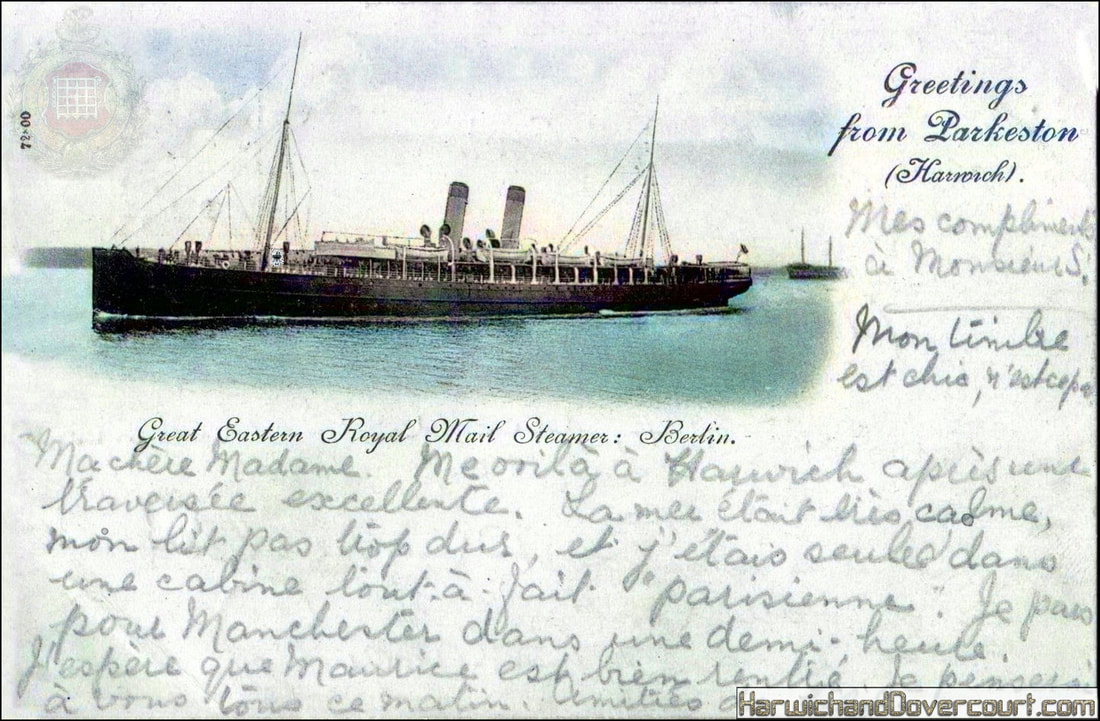 72-00
Greetings
from Parkeston
(Harwich).
Mes compliments
à Monsieur S.
Mon timbre
est chic, n'est ce pas
Great Eastern Royal Mail Steamer: Berlin.
Ma chère Madame. Me voilà à Harwich après une
traversée excellente. La mer était très calme,
mon lit pas trop dur, et j'étais seule dans
une cabine tout-à-fait "parisienne". Je pars
pour Manchester dans une demi-heure.
J'espère que Maurice est bien rentré. Je penserai
à vous tous ce matin. Amitiés
HarwichandDovercourt.com